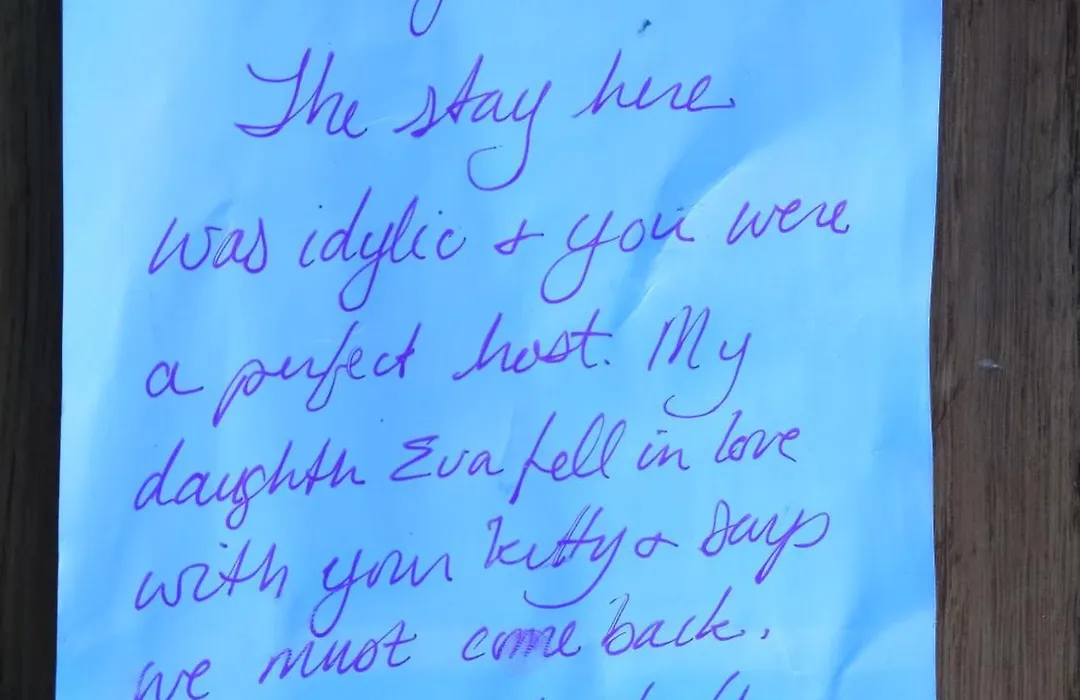 The stay here
was idylic & you were
a perfect host. My
daughter Eva fell in love
with your kitty & says
we must come back.